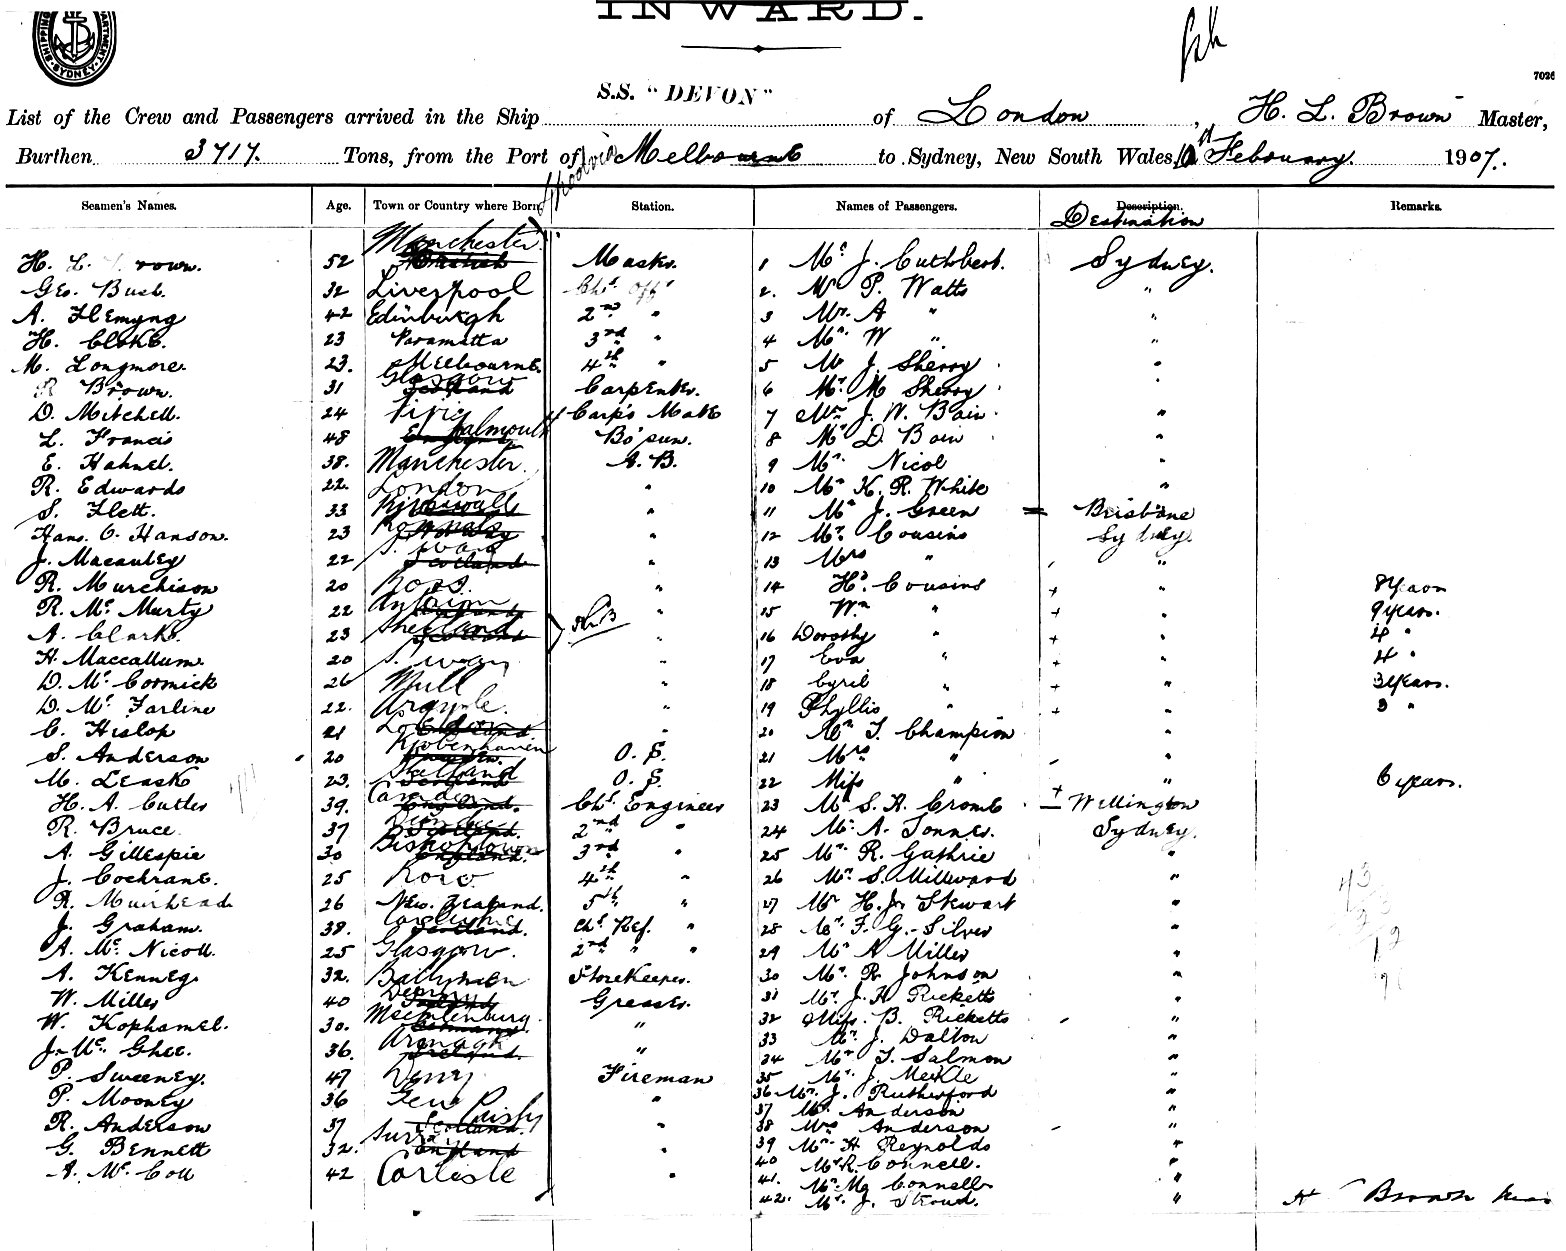 INWARD.
SHIPPING DEPARTMENT. SYDNEY.
7026
S.S. "DEVON"
List of the Crew and Passengers arrived in the Ship of London, H. L. Brown Master,
Burthen 3717. Tons, from the Port of via Melbourne to Sydney, New South Wales, Febuary. 1907.
Seamen's Names. Age. Town or Country where Born. Station. Names of Passengers. Description. Remarks.
Destination
H. L. Brown. 52 Manchester Master. 1 Mr. J. Cuthbert. Sydney.
Geo. Bush. 32 Liverpool Ch. Off. 2. Mr P. Watts "
A. Flemyng 42 Edinburgh 2nd " 3 Mr. A " "
H. Cloke. 23 Paramatta 3rd " 4 Mr. W " "
M. Longmore. 23. Melbourne. 4th " 5 Mr J. Sherry
R Brown. 31 Glasgow Scotland Carpenter. 6 Mr. M Sherry
D. Mitchell. 24 Carp's Mate 7 Mr. J. W. Bain "
L. Francis 48 Falmouth England Bo'sun. 8 Mr D. Bain "
E. Hahnel. 38. Manchester. A. B. 9 Mr. Nicol "
R. Edwards 22. London " 10 Mr. H. R. White "
S. Flett. 33 Kirkwall " 11 Mr J. Green = Brisbane
Hans. C. Hanson. 23 Norway " 12 Mr. Cousins Sydney.
J. Macauley 22 Scotland " 13 Mrs " "
R. Murchison 20 Ross. " 14 H. Cousins + " 8 Years
R. Mc. Murty 22 Antrim " 15 Wm " + " 9 years.
A. Clark. 23 Shetland Scotland " 16 Dorothy " + " 4 "
H. Maccallum. 20 " 17 Eva " + " 4 "
D. Mc. Cormick 26 Mull " 18 Cyril " + " 3 Years.
D. Mc. Farline 22. Argyle. " 19 Phyllis " + " 3 "
C. Hislop 21 London " 20 Mr. T. Champion "
S. Anderson 20 Kjobenhaven O. S. 21 Mrs " "
M. Leask 23. Shetland Scotland O. S. 22 Miss " + " 6 years.
H. A. Cutler 39. England. Ch. Engineer 23 Mr S. A. Cromb Wellington
R. Bruce 37 Dundee Scotland. 2nd " 24 Mr. A. Tonnes. Sydney.
A. Gillespie 30 Bishoptown England. 3rd " 25 Mr. R. Guthrie "
J. Cochrane. 25 4th " 26 Mr. S. Millward "
R. Muirhead 26 New. Zealand. 5th " 27 Mr H. J. Stewart "
J. Graham. 38. Scotland. Ch. Ref. " 28 Mr. F. G. Silver "
A. Mc. Nicoll. 25 Glasgow. 2nd " " 29 Mr A Miller "
A. Kenneg. 32. Ballymena Storekeeper. 30 Mr. R. Johnson "
W. Miller 40 Derry Ireland Greaser. 31 Mr. J. H Ricketts "
W. Kophamel. 30. Mecklenburg. Germany. " 32 Miss. B. Ricketts "
J. Mc. Ghee. 36. Armagh Ireland. " 33 Mr. J. Dalton "
P. Sweeney. 47 Derry Fireman 34 Mr T. Salmon "
P. Mooney 36 " 35 Mr. J. Meikle "
R. Anderson 37 Paisly Scotland. " 36 Mr. J. Rutherford "
G. Bennett 32. Surrey England " 37 Mr. Anderson "
A. Mc. Coll 42 Carlisle " 38 Mrs Anderson "
39 Mr H Reynolds "
40 Mr R. Connell.
41. Mr. Connell "
42. Mr. J. Stroud. " H Brown